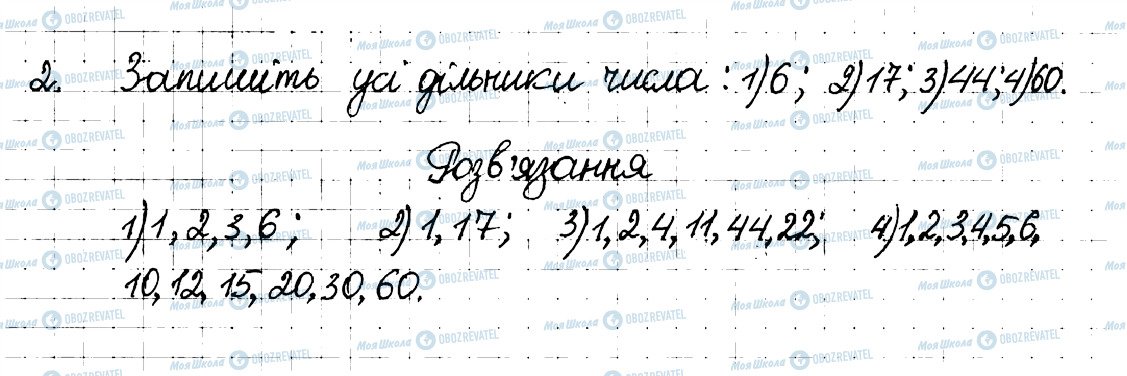 2. Запишіть усі дільники числа: 1) 6; 2) 17; 3) 44; 4) 60.
Розв'язання
1) 1, 2, 3, 6; 2) 1, 17; 3) 1, 2, 4, 11, 44, 22; 4) 1, 2, 3, 4, 5, 6,
10, 12, 15, 20, 30, 60.